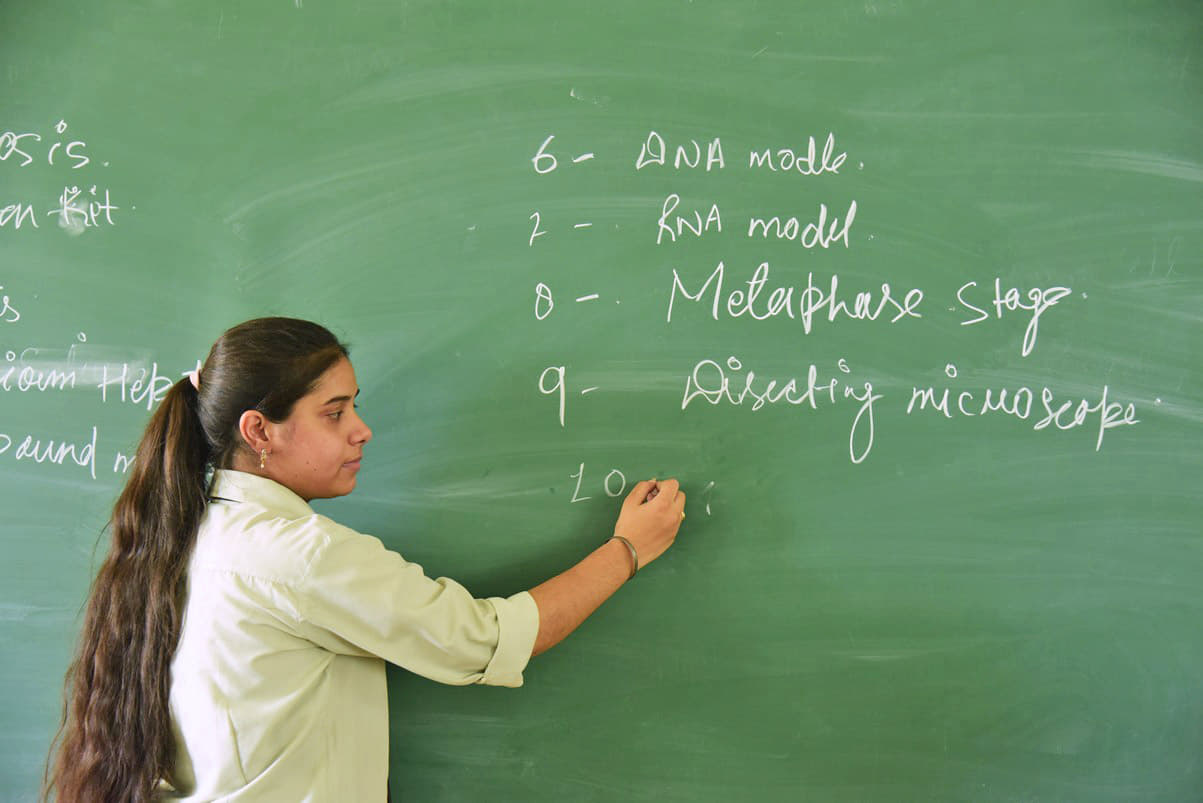 osis.
on Kit
is
ium Hep
ound m
6 - DNA modle.
7 - RNA model.
8 - Metaphase stage.
9 - Disecting microscope.
10